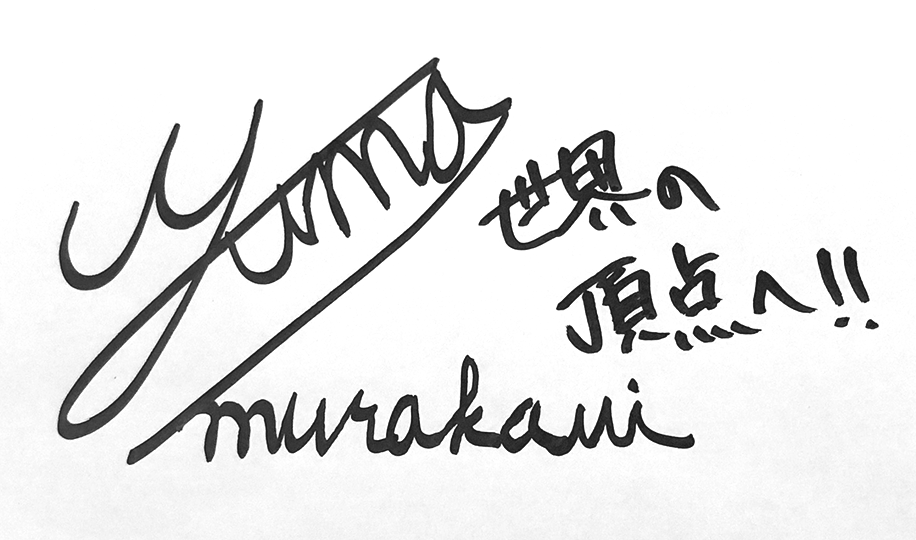 Yuma
世界の
頂点へ!!
murakami